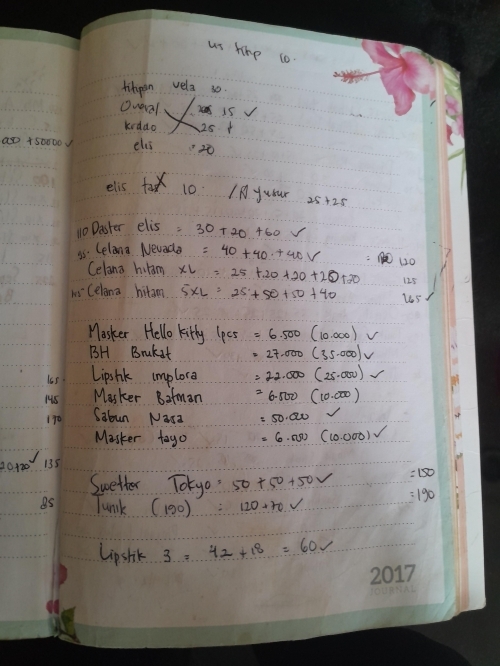 titip 10.
titipan vela 30.
Overal 15 ✓
kiddo 25 +
elis = 20
000 + 50000 ✓
elis tas 10. yusur 25+25
110 Daster elis = 30 + 20 + 60 ✓
95. Celana Nevada = 40 + 40 + 40 ✓ = 120
Celana hitam XL = 25 + 20 + 20 + 20 + 20 125
Celana hitam 5XL = 25 + 50 + 50 + 40 165 ✓
Masker Hello kitty 1pcs = 6.500 (10.000) ✓
BH Brukat = 27.000 (35.000) ✓
Lipstik implora = 22.000 (25.000) ✓
Masker Batman = 6.500 (10.000)
Sabun Nasa = 50.000 ✓
Masker tayo = 6.500 (10.000) ✓
165
145
190
135
85
Swetter Tokyo = 50 + 50 + 50 ✓ = 150
Tunik (190) = 120 + 70 ✓ = 190
Lipstik 3 = 42 + 18 = 60 ✓
2017
JOURNAL